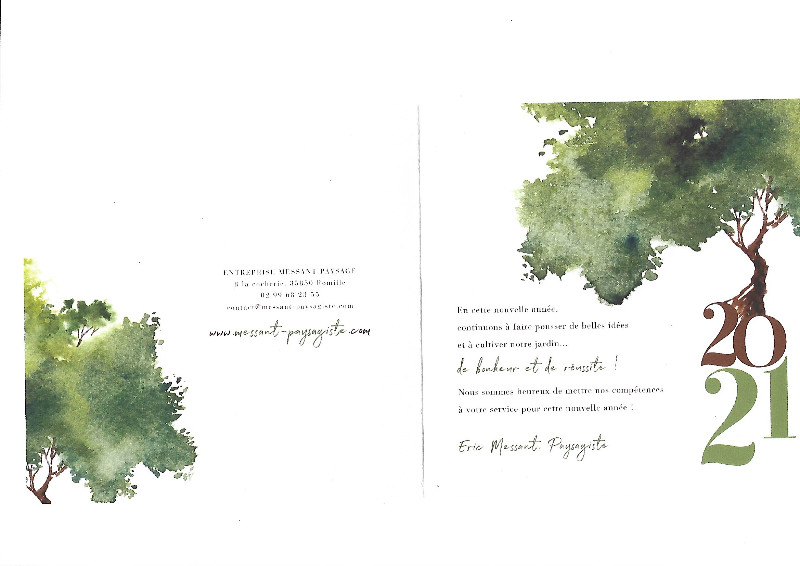 ENTREPRISE MESSANT PAYSAGE
35850 Romillé
02 99 68 23 55
contact@messant-paysagiste.com
www.messant-paysagiste.com
En cette nouvelle année,
continuons à faire pousser de belles idées
et à cultiver notre jardin...
de bonheur et de réussite !
Nous sommes heureux de mettre nos compétences
à votre service pour cette nouvelle année !
Eric Messant, Paysagiste
2021